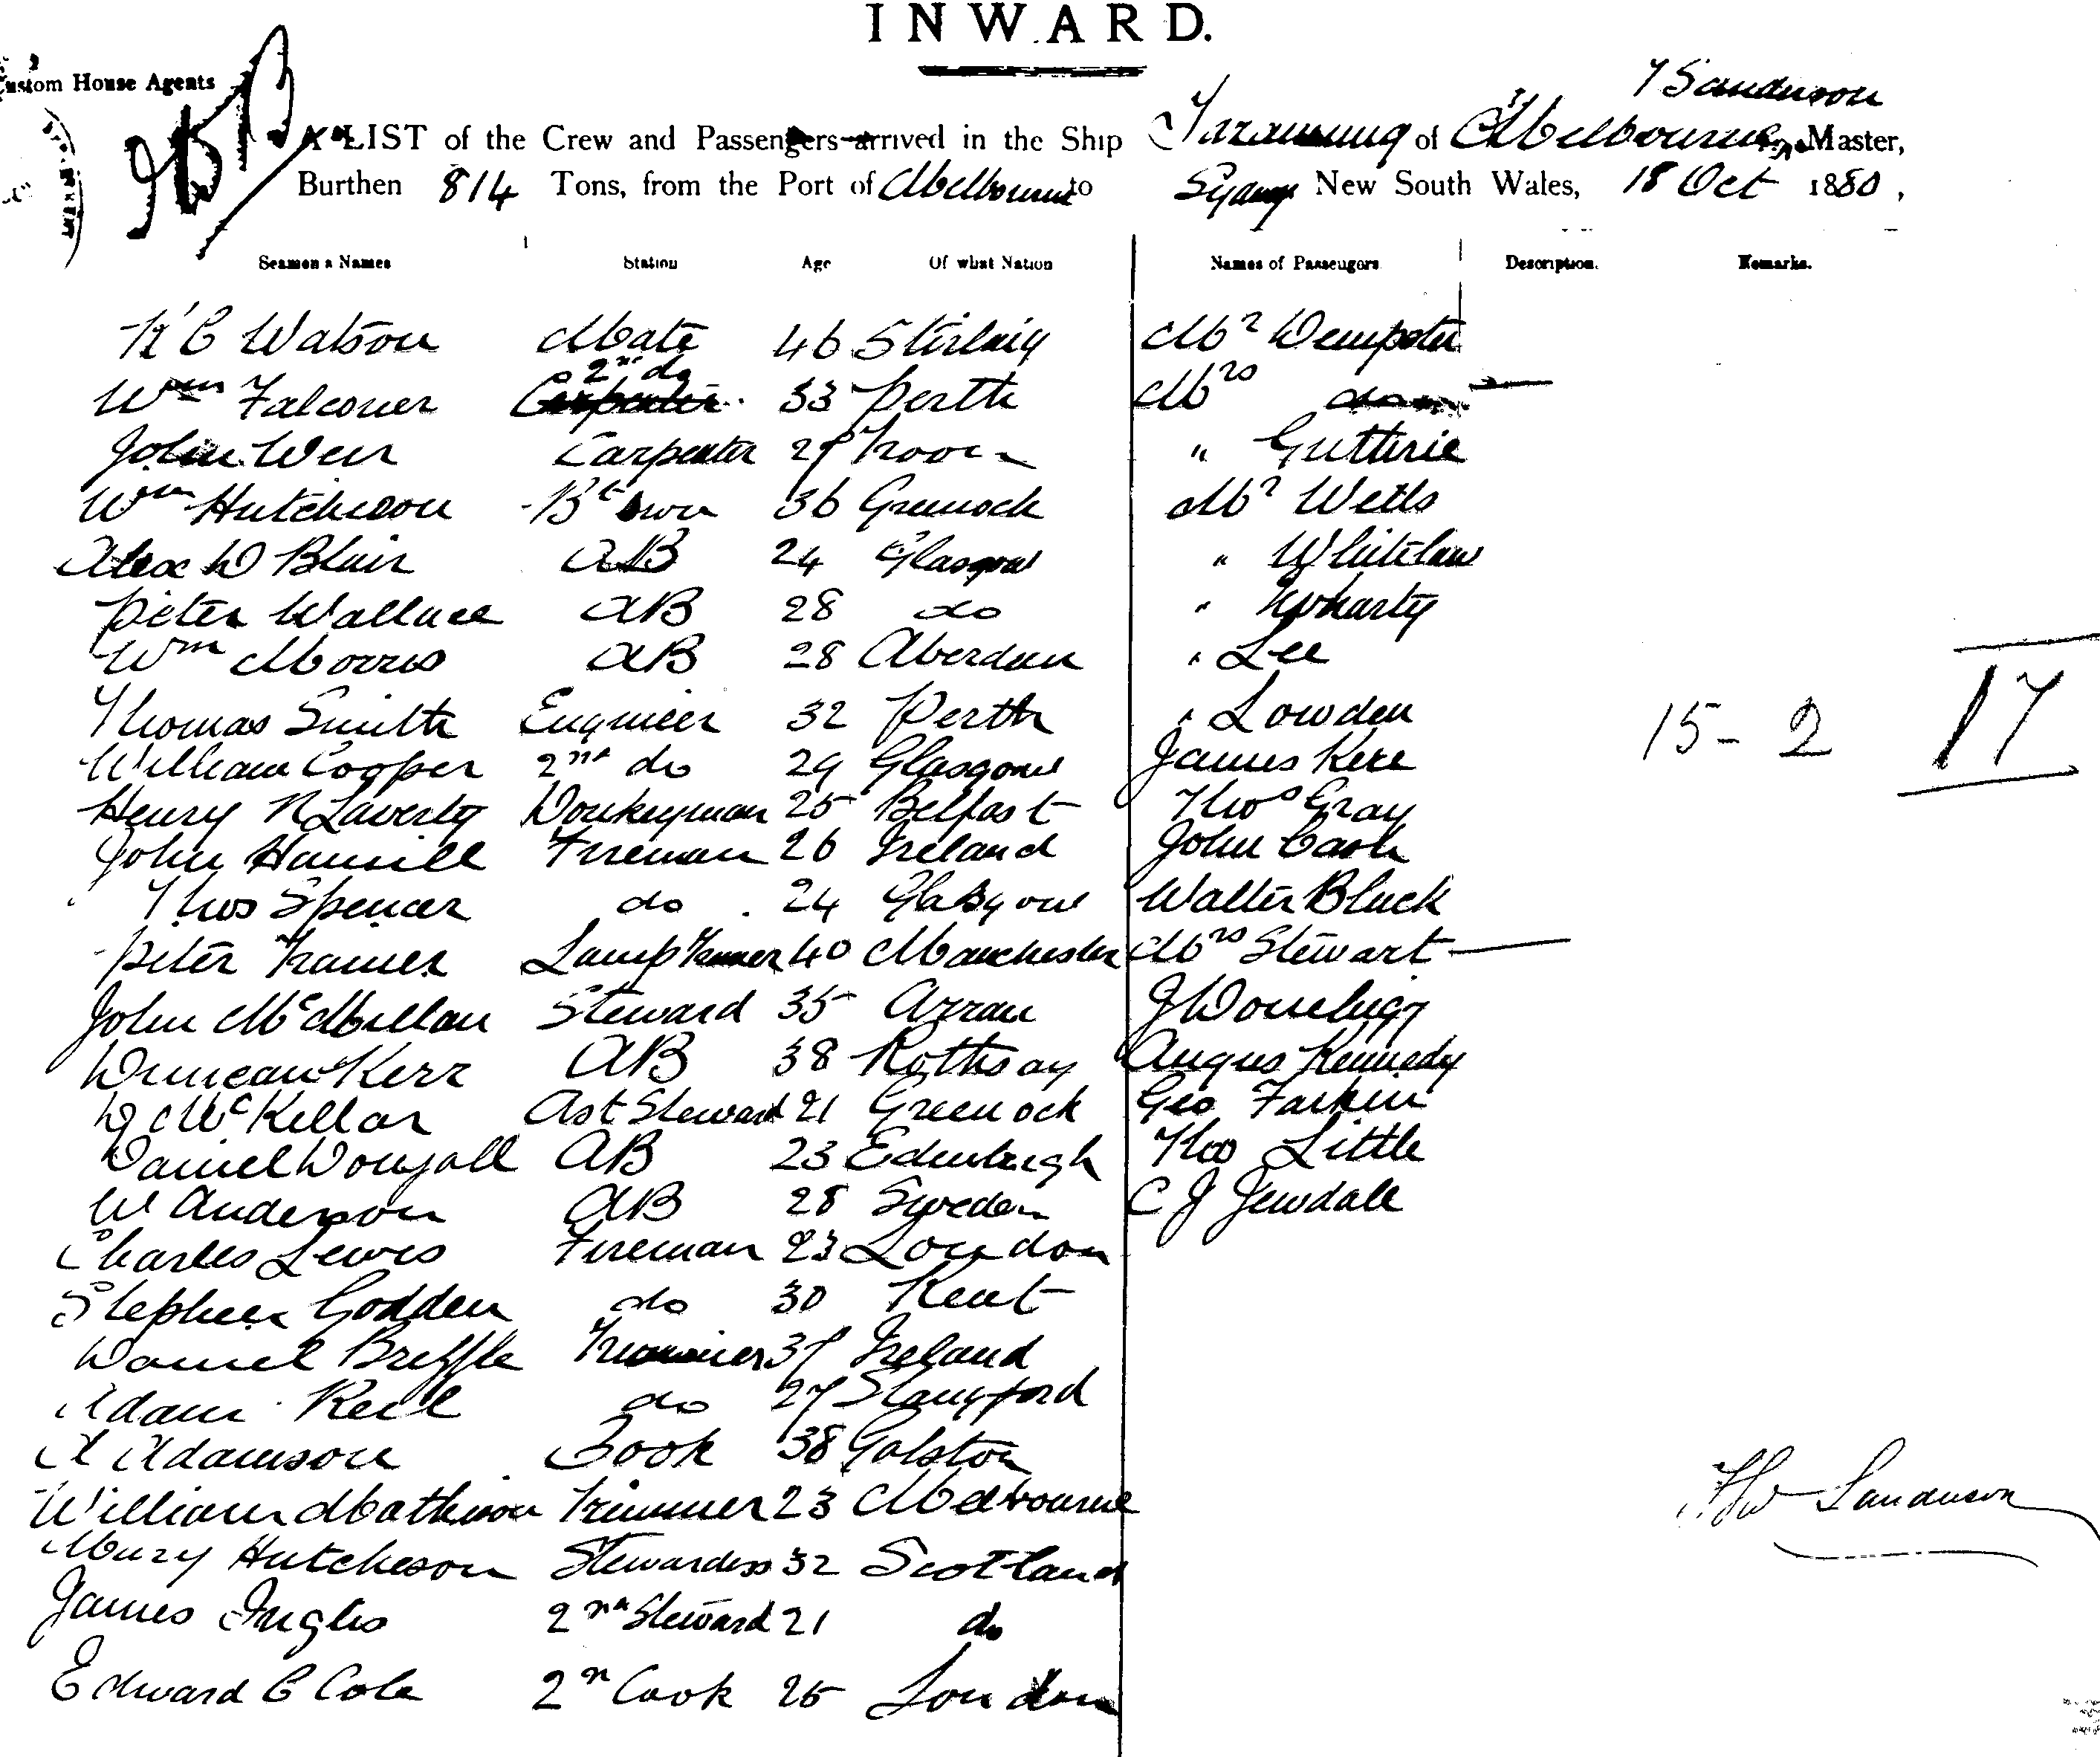 INWARD.
Custom House Agents
T Sanderson
A LIST of the Crew and Passengers arrived in the Ship of Melbourne, Master,
Burthen 814 Tons, from the Port of Melbourne to Sydney New South Wales, 18 Oct 1880,
Seamen's Names Station Age Of what Nation Names of Passengers Description. Remarks.
C Watson Mate 46 Stirling Mr Dempster
Wm Falconer Carpenter 2nd do 33 Perth Mrs do
John Weir Carpenter 29 Troon " Guthrie
Wm Hutcheson Btswn 36 Greenock Mr Wells
Alex W Blair AB 24 Glasgow " Whitelaw
Peter Wallace AB 28 do "
Wm Morris AB 28 Aberdeen " Lee
Thomas Smith Engineer 32 Perth " Lowden
William Cooper 2nd do 29 Glasgow James Kerr
Henry Laverty Donkeyman 25 Belfast Thos Gray
John Hamill Fireman 26 Ireland John Cash
Thos Spencer do 24 Glasgow Walter Black
Peter Kramer Lamp Trimmer 40 Manchester Mrs Stewart
John McMillan Steward 35 Arran J
Duncan Kerr AB 38 Rothsay Angus Kennedy
D McKellar Ast Steward 21 Greenock Geo
Daniel Dougall AB 23 Edenburgh Thos Little
W Anderson AB 28 Sweden C J Jewdale
Charles Lewis Fireman 23 London
Stephen Godden do 30 Kent
Daniel Trimmer 37 Ireland
Adam do 27
A Adamson Cook 38 Galston
William Mathison Trimmer 23 Melbourne
Mary Hutcheson Stewardess 32 Scotland
James Inglis 2nd Steward 21 do
Edward C Cole 2n Cook 25 London
15 - 2 17
Sanderson